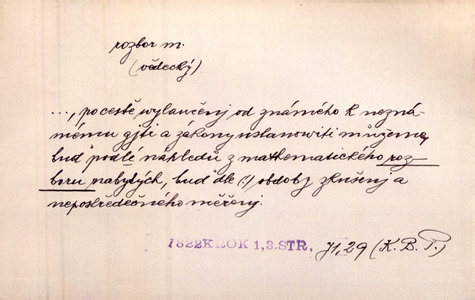 rozbor m.
(vědecký)
..., po cestě wylaučenj od známého k nezná-
mému gjti a zákony ustanowiti můžeme,
buď podlé náhledů z mathematického roz-
boru nabytých, buď dle (!) obdoby zkušenj a
neposředečného měřenj.
1822KROK 1,3.STR, 71,29 (K. B. P.)